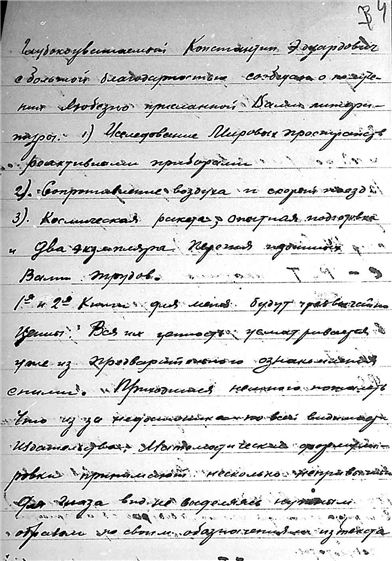 Глубокоуважаемый Константин Эдуардович
с большой благодарностью сообщаю о получе-
нии любезно присланной Вами литера-
туры. 1) Исследование Мировых пространств
реактивными приборами
2). Сопротивление воздуха и скорый поезд
3). Космическая ракета, опытная подготовка
и два экземпляра перечня изданных
Вами трудов.
1ая и 2ая книги для меня будут чрезвычайно
ценны. Вся их ценность усматривается
уже из предварительного ознакомления
с ними. Приходится немного пожалеть
что из за недостатка по всей видимости
издательства, Математические формули-
ровки приняли несколько непривычный
для глаза вид не выделяясь нужным
образом по своим обозначениям из текста